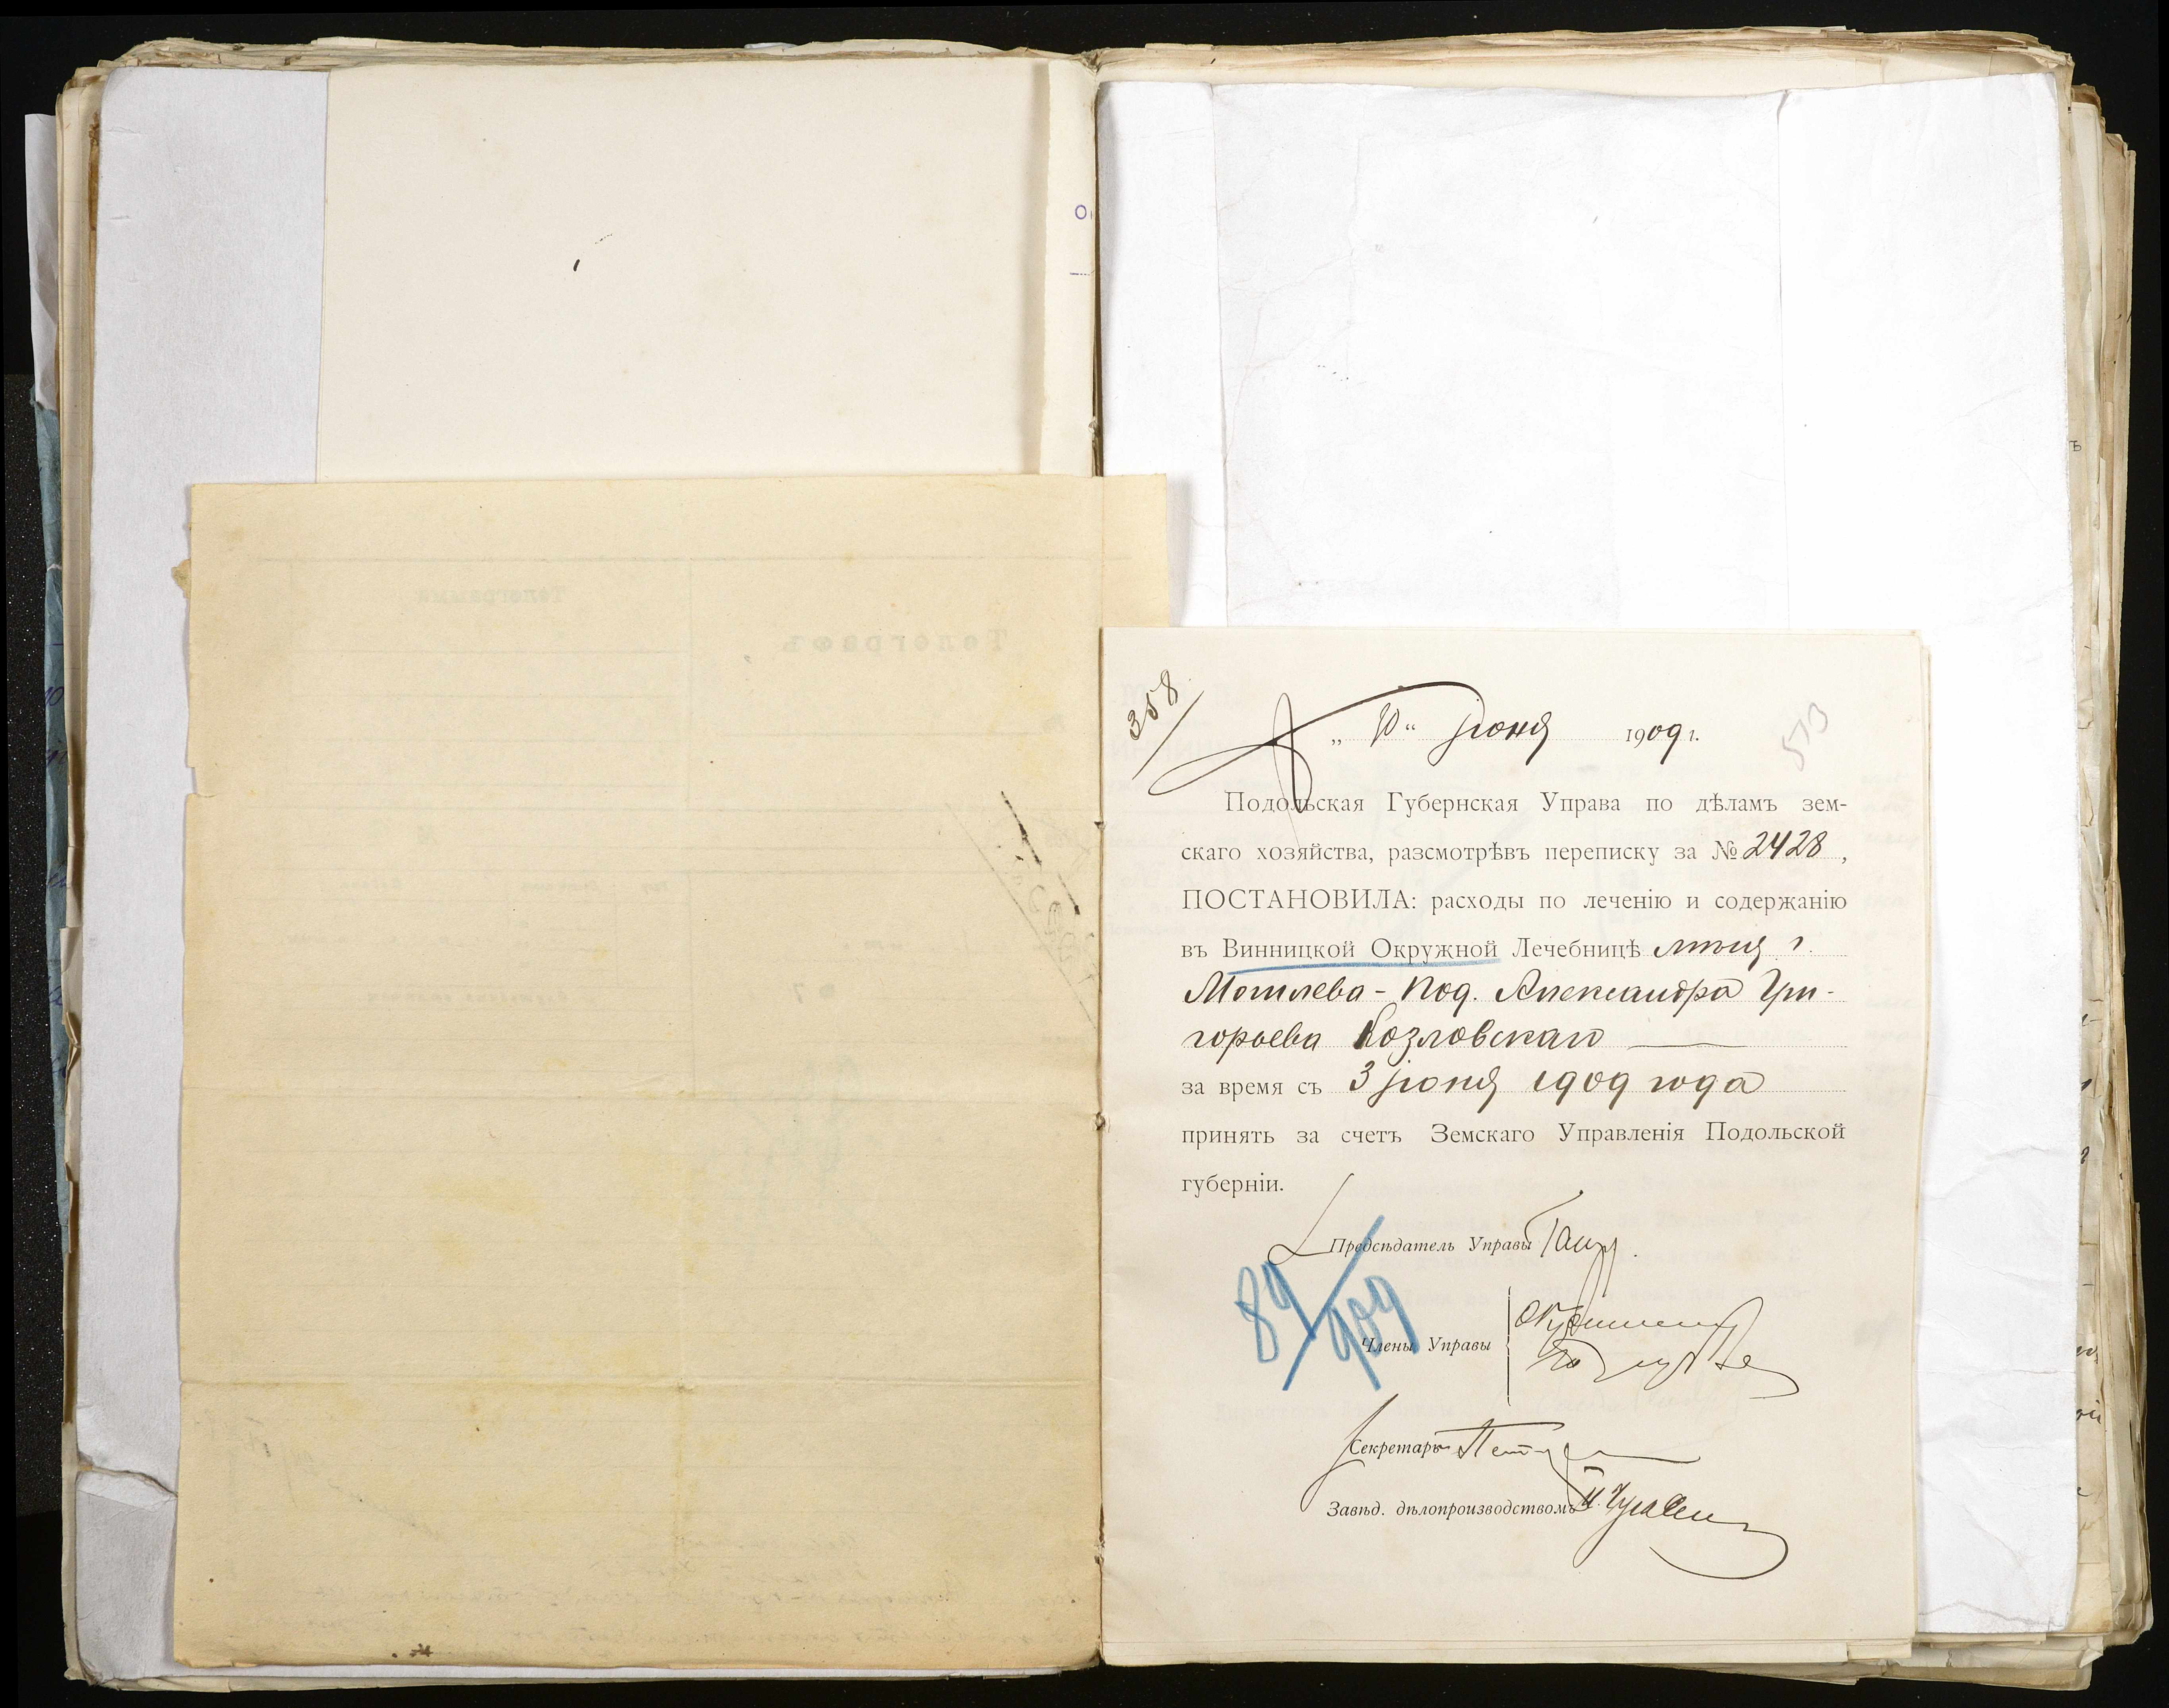 358
„ 10 “ Іюня 1909 г.
513
Подольская Губернская Управа по дѣламъ зем-
скаго хозяйства, разсмотрѣвъ переписку за № 2428 ,
ПОСТАНОВИЛА: расходы по леченію и содержанію
въ Винницкой Окружной Лечебницѣ г.
Могилева-Под. Александра Гри-
горьева Козловскаго
за время съ 3 Іюня 1909 года
принять за счетъ Земскаго Управленія Подольской
губерніи.
Предсѣдатель Управы
89/909
Члены Управы
Секретарь
Завѣд. дѣлопроизводствомъ